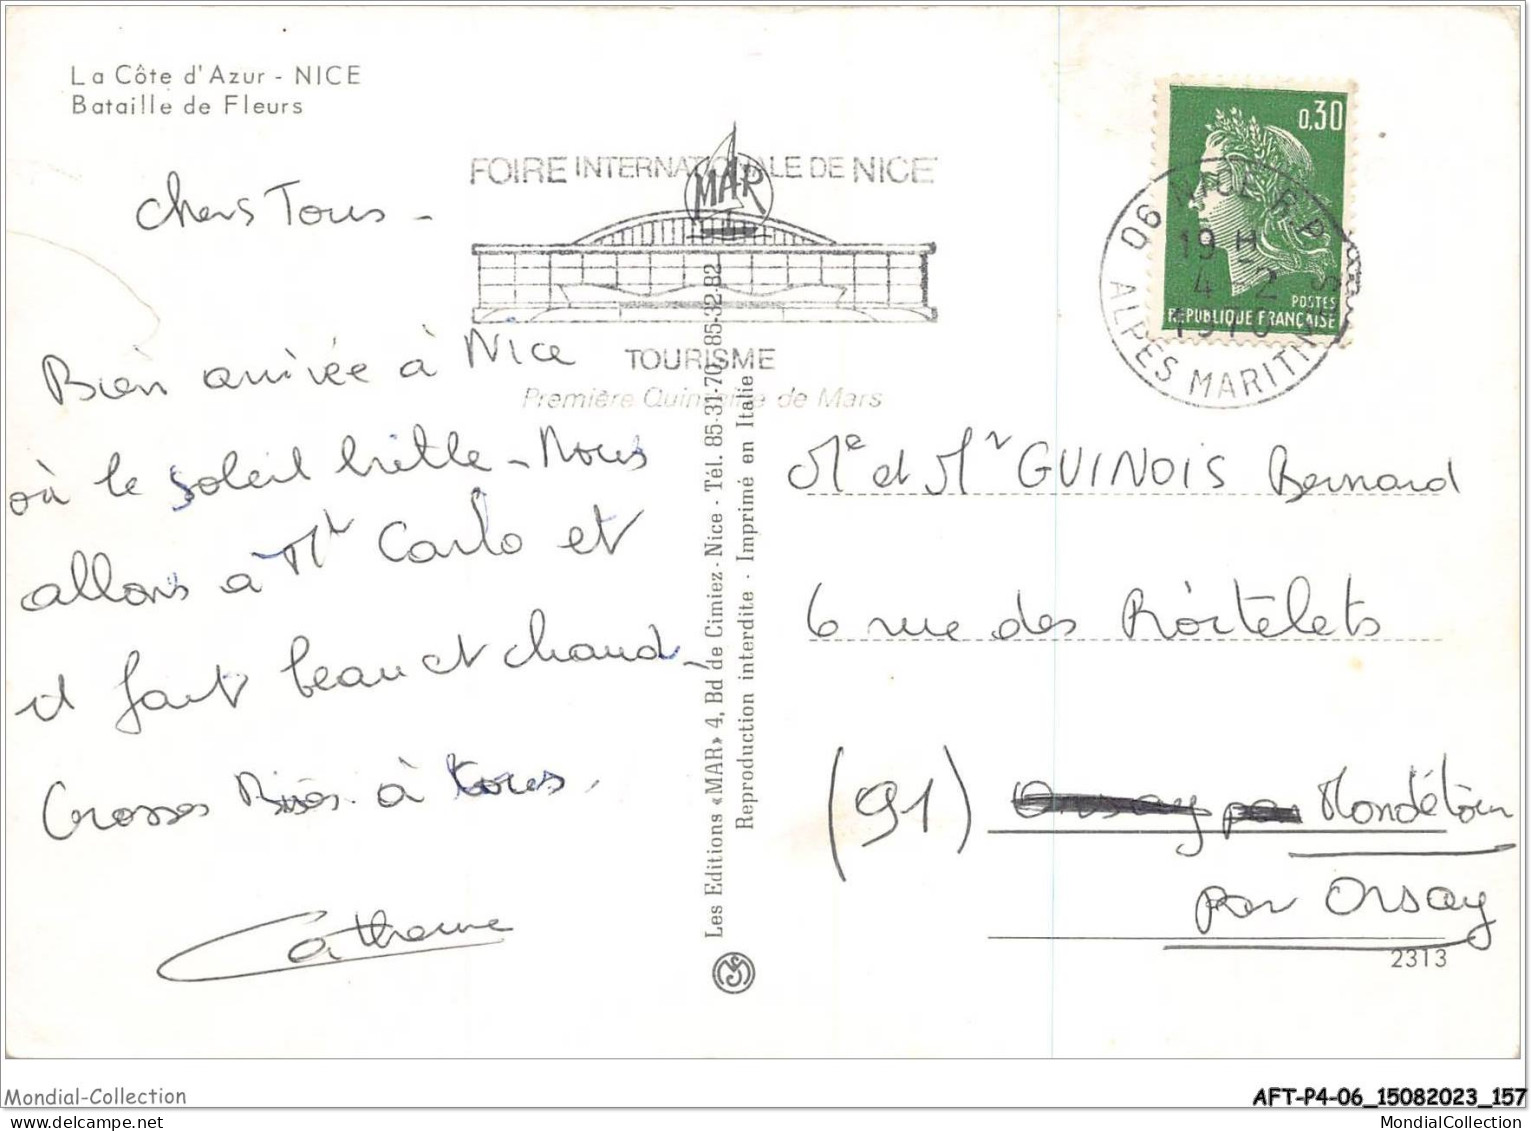 La Côte d'Azur - NICE
Bataille de Fleurs
FOIRE INTERNATIONALE DE NICE
MAR
TOURISME
Première Quinzaine de Mars
0,30
POSTES
REPUBLIQUE FRANÇAISE
06 NICE R.P.
19 H
4 - 2
ALPES MARITIMES
chers Tous -
Bien arrivée à Nice
où le soleil brille - Nous
allons à Mt Carlo et
il fait beau et chaud -
Grosses Bises à tous.
Catherine
Les Editions «MAR» 4, Bd de Cimiez - Nice - Tél. 85-31-70 85-32-82
Reproduction interdite - Imprimé en Italie
Me et Mr GUINOIS Bernard
6 rue des Roitelets
(91) Orsay par Mondétour
par Orsay
2313
Mondial-Collection
AFT-P4-06_15082023_157
MondialCollection